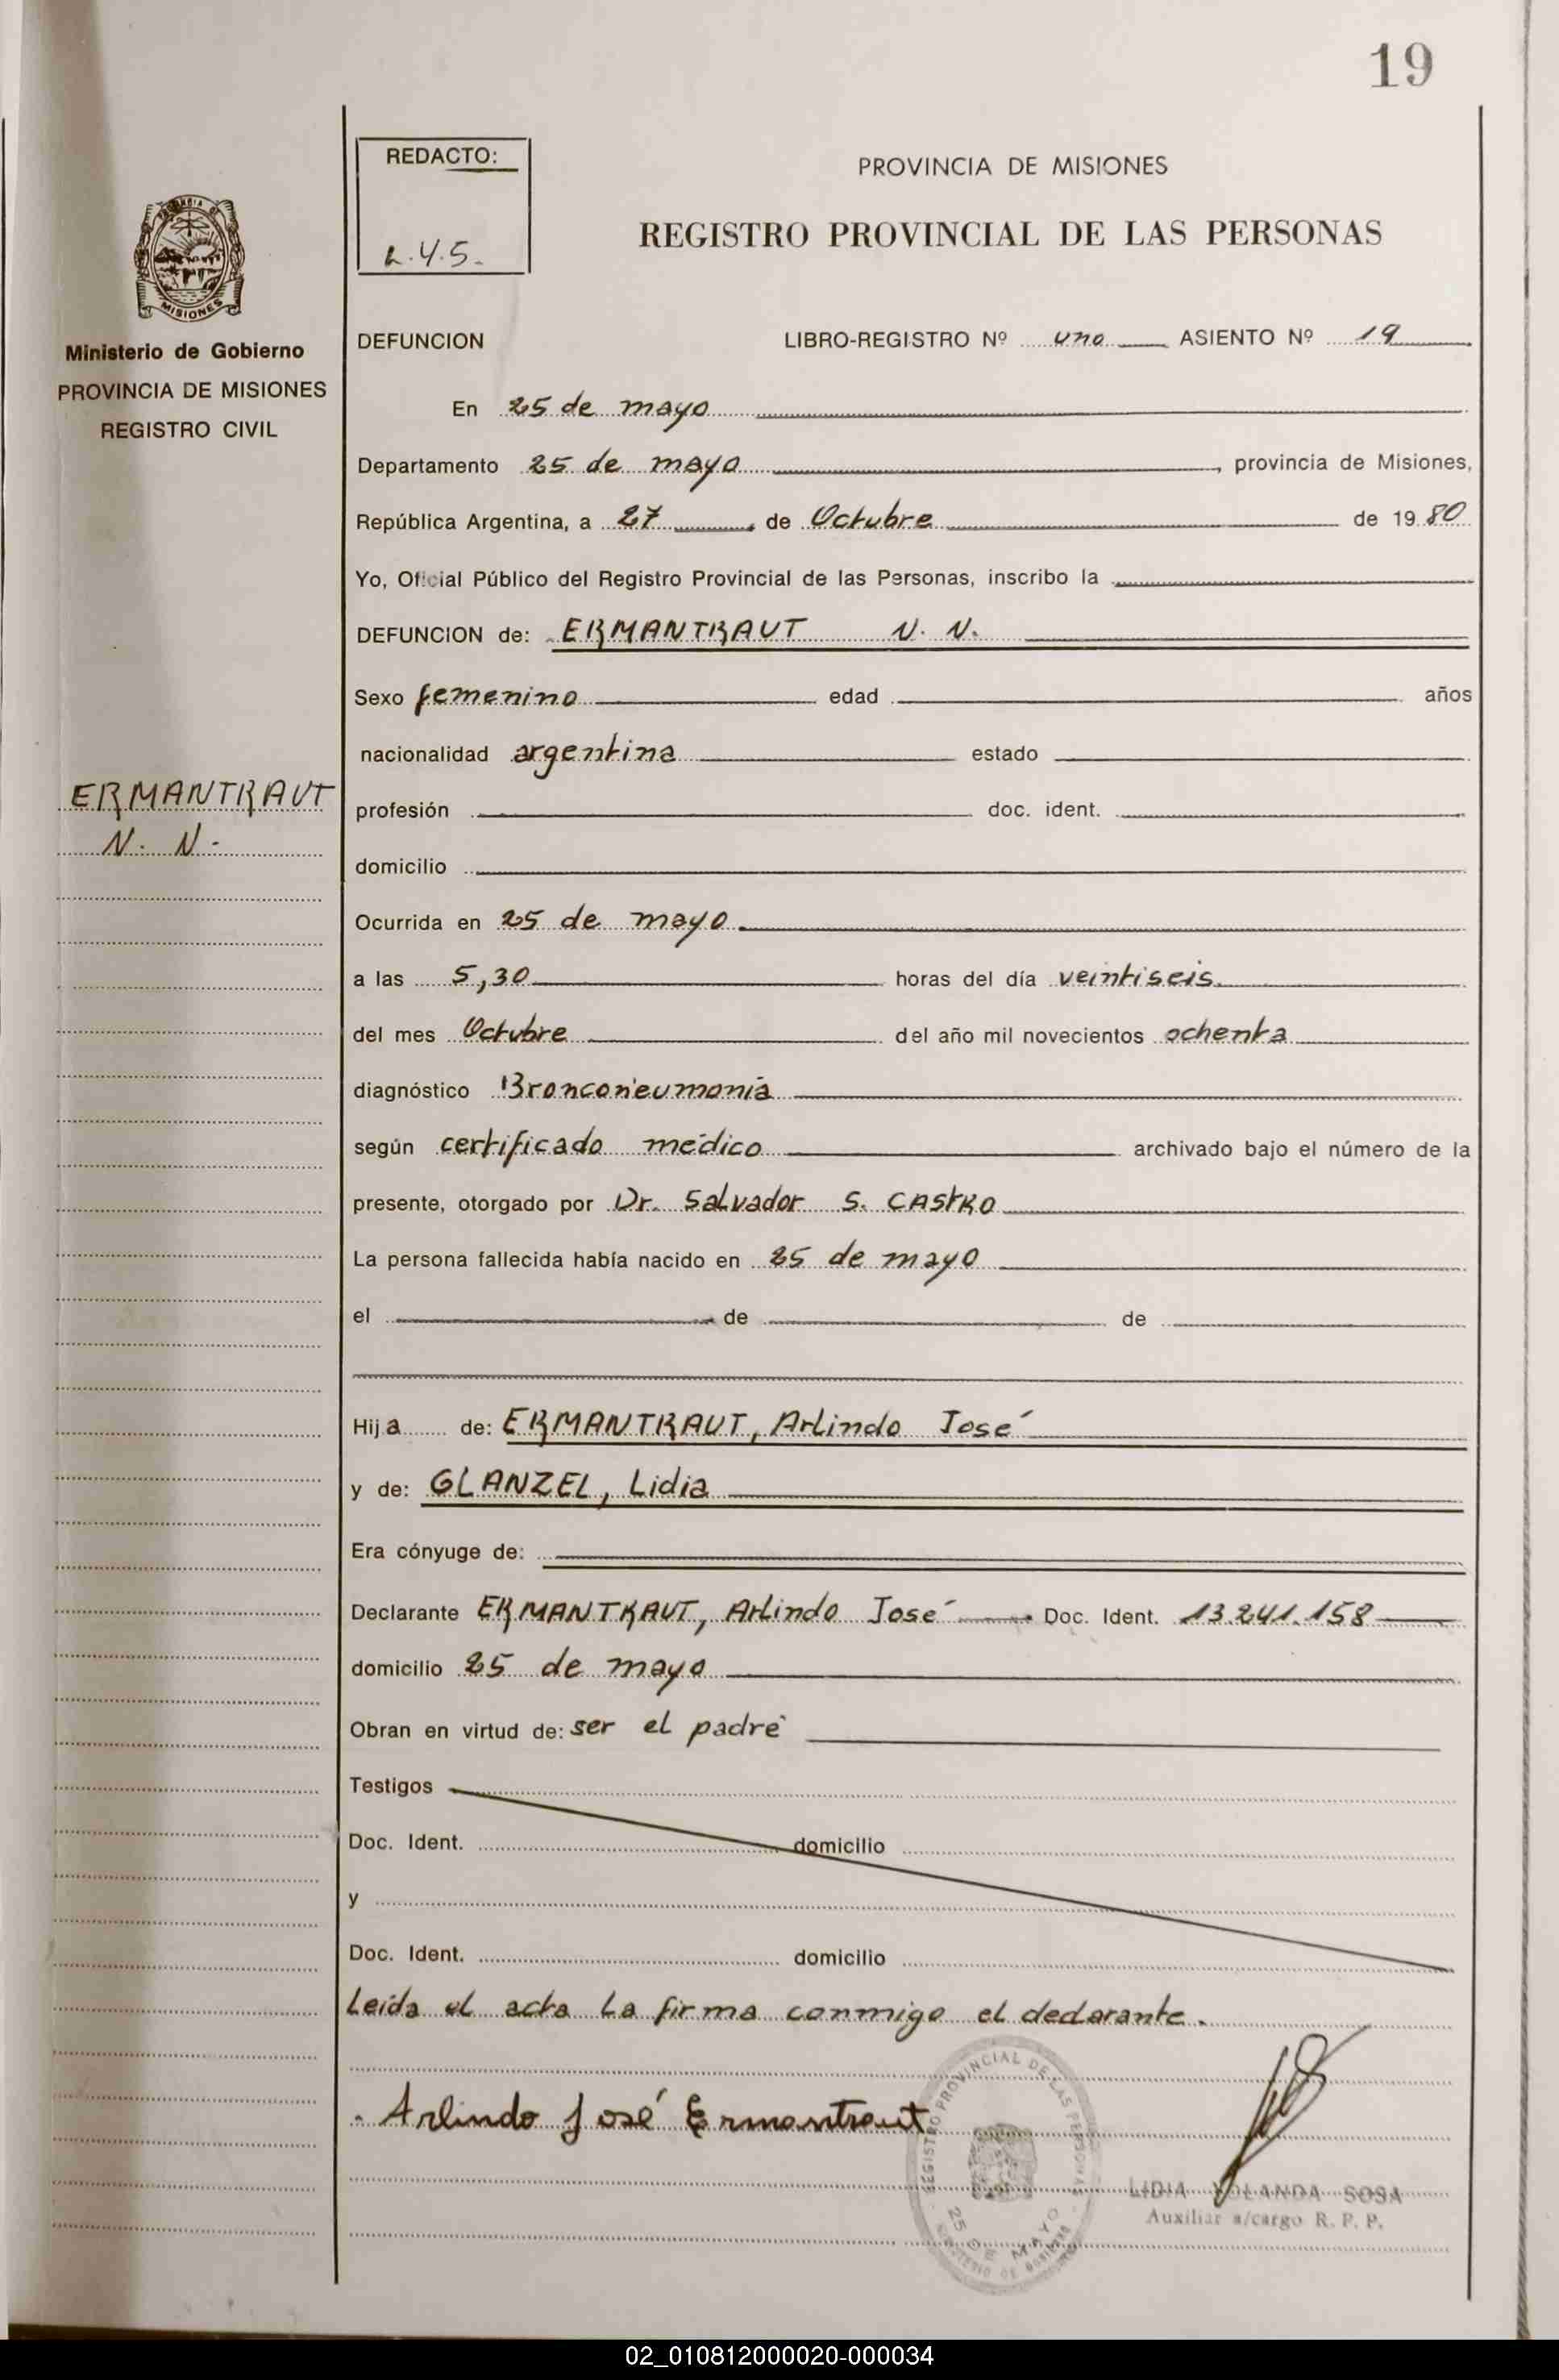 19
REDACTO:
L.Y.S.
PROVINCIA DE MISIONES
REGISTRO PROVINCIAL DE LAS PERSONAS
MISIONES
Ministerio de Gobierno
PROVINCIA DE MISIONES
REGISTRO CIVIL
ERMANTRAUT
N. N.
DEFUNCION LIBRO-REGISTRO Nº uno ASIENTO Nº 19
En 25 de mayo
Departamento 25 de mayo, provincia de Misiones,
República Argentina, a 27 de Octubre de 1980
Yo, Oficial Público del Registro Provincial de las Personas, inscribo la
DEFUNCION de: ERMANTRAUT N. N.
Sexo femenino edad años
nacionalidad argentina estado
profesión doc. ident.
domicilio
Ocurrida en 25 de mayo
a las 5,30 horas del día veintiseis
del mes Octubre del año mil novecientos ochenta
diagnóstico Bronconeumonía
según certificado médico archivado bajo el número de la
presente, otorgado por Dr. Salvador S. CASTRO
La persona fallecida había nacido en 25 de mayo
el de de
Hija de: ERMANTRAUT, Arlindo José
y de: GLANZEL, Lidia
Era cónyuge de:
Declarante ERMANTRAUT, Arlindo José Doc. Ident. 13.241.158
domicilio 25 de mayo
Obran en virtud de: ser el padre
Testigos
Doc. Ident. domicilio
y
Doc. Ident. domicilio
Leída el acta la firma conmigo el declarante.
Arlindo José Ermantraut
REGISTRO PROVINCIAL DE LAS PERSONAS
25 DE MAYO
MINISTERIO DE GOBIERNO
LIDIA YOLANDA SOSA
Auxiliar a/cargo R. P. P.
02_010812000020-000034